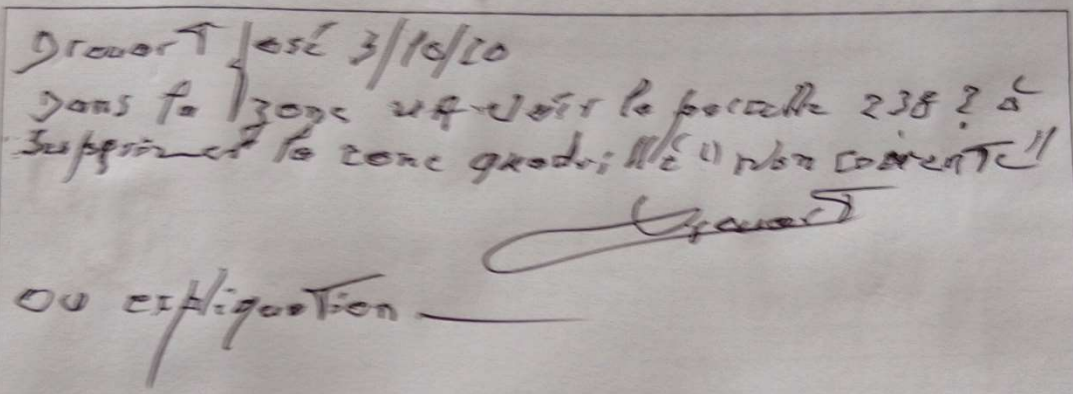 Drouart José 3/10/20
Dans la zone UA voir la parcelle 238 ? à
Supprimer la zone quadrillé "non coérente"
Drouart
ou expliquation